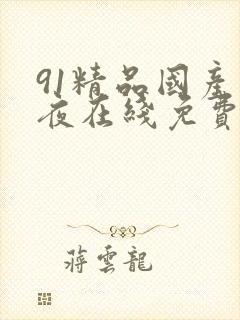 91精品國產
夜在綫免費
蔣雲龍